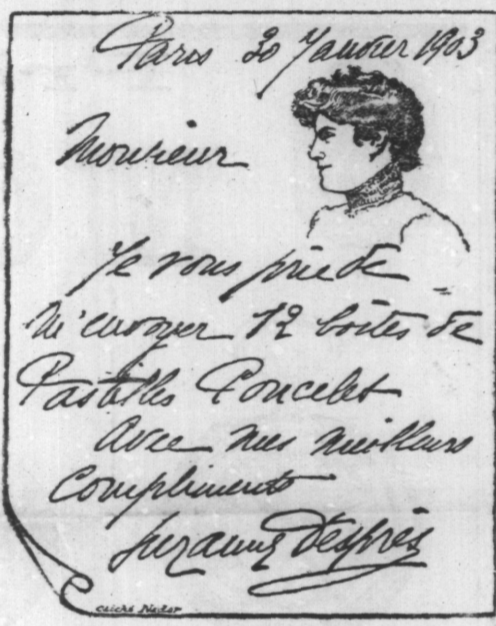 Paris 20 Janvier 1903
Monsieur
Je vous prie de
m'envoyer 12 boîtes de
Pastilles Poncelet
Avec mes meilleurs
Compliments
Suzanne Desprès
Cliché Nadar